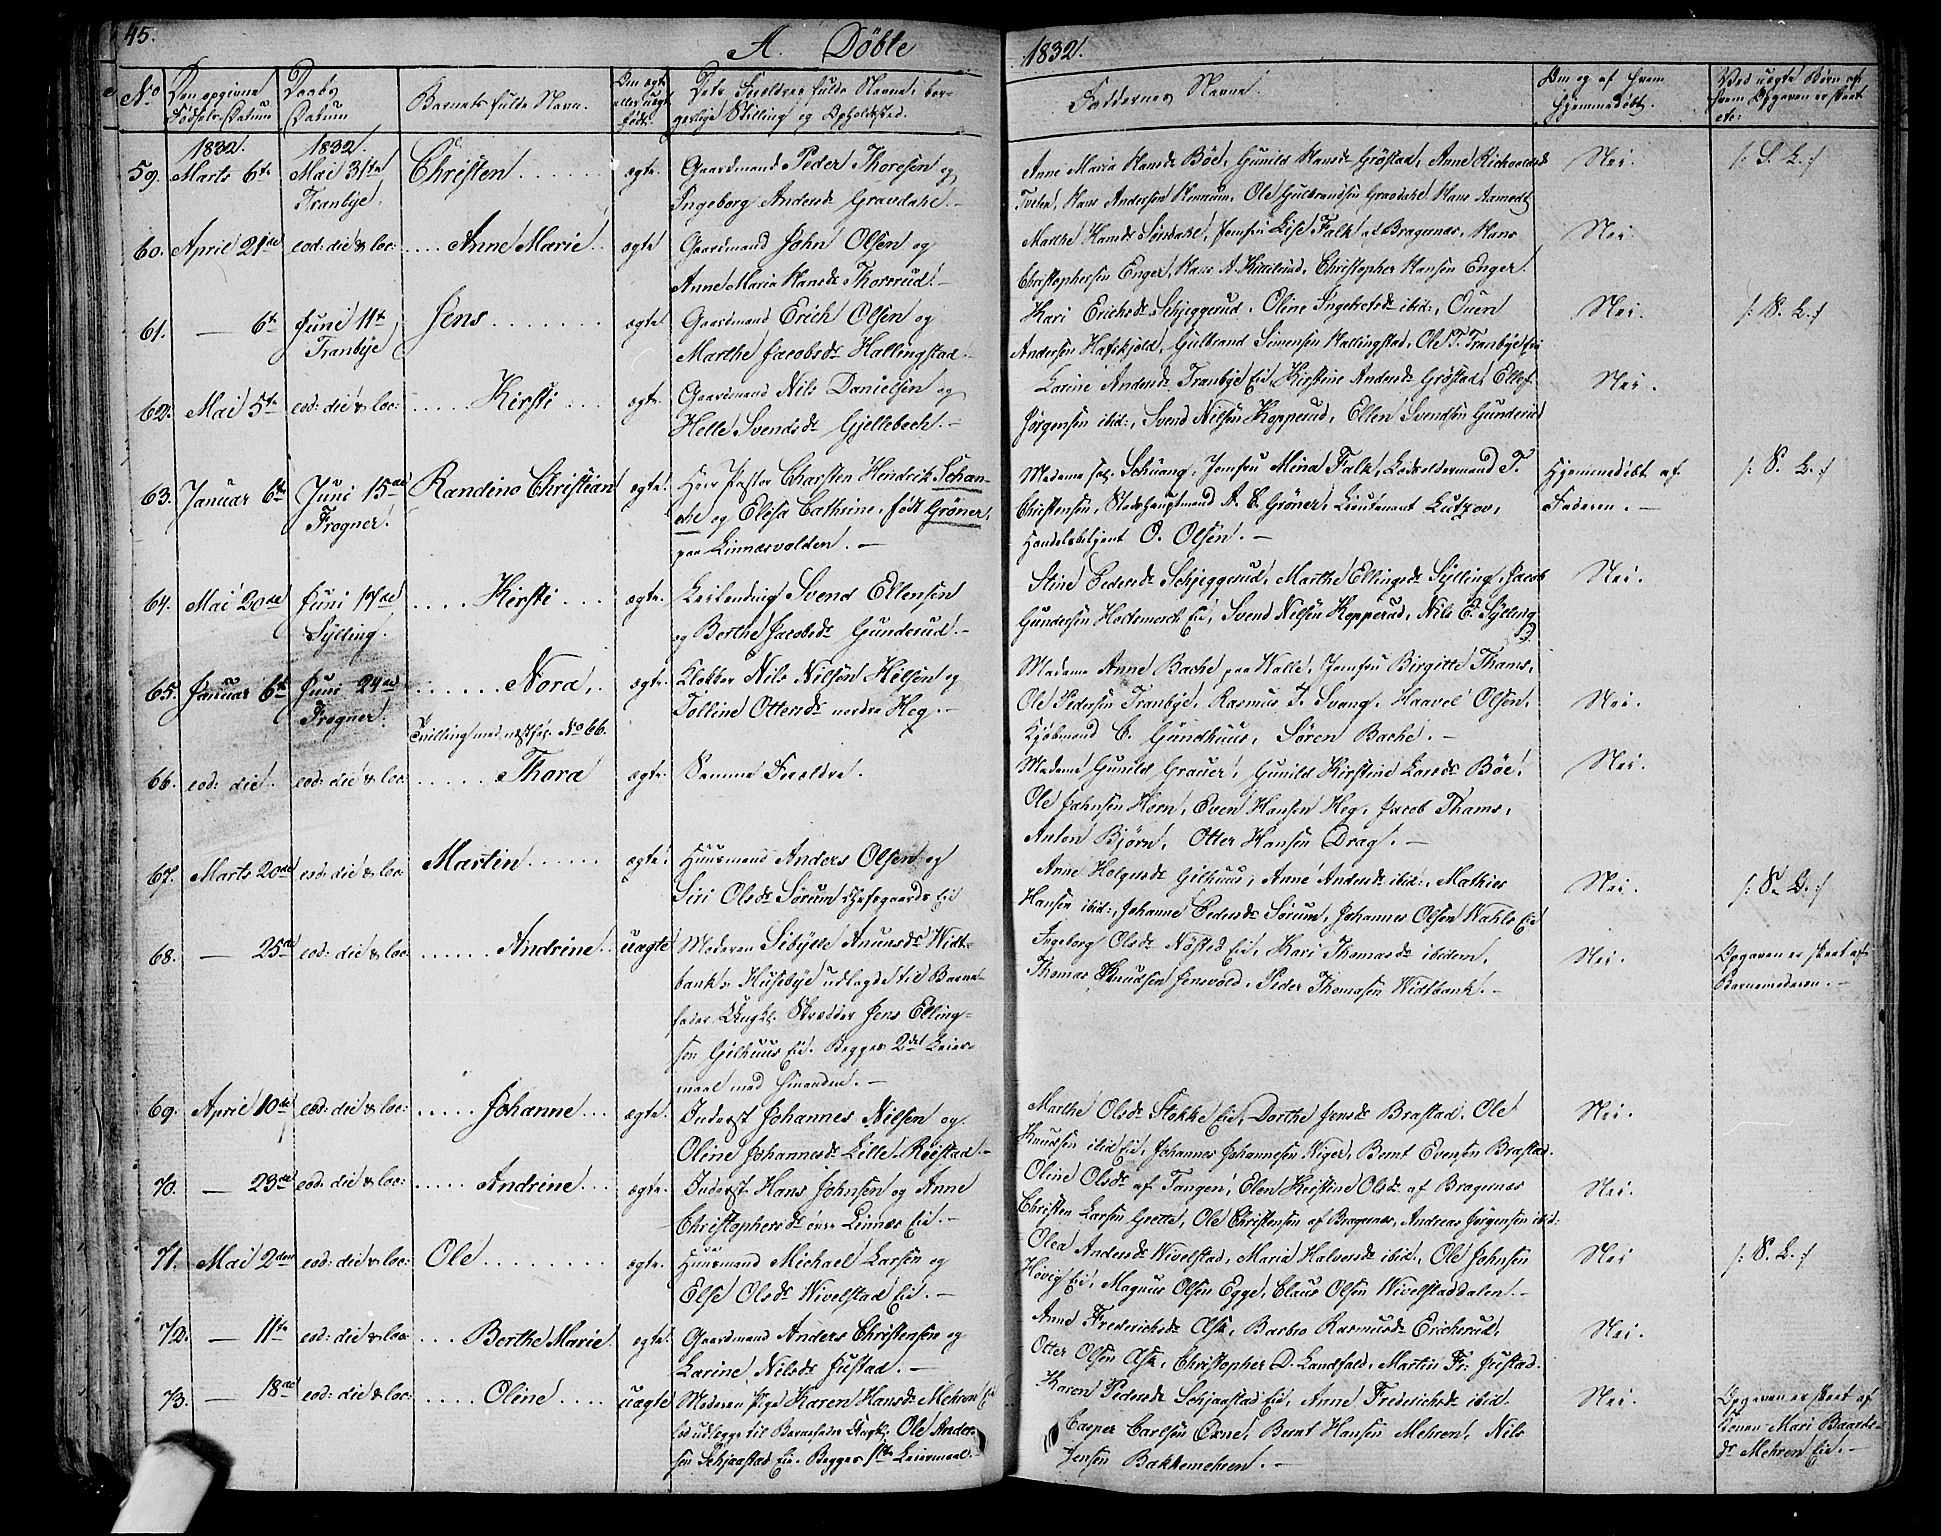 45.
A. Døbte
1832.
No
Den opgivne Fødsels-Datum
Daabs Datum
Barnets fulde Navn.
Om ægte eller uægte født.
Dets Forældres fulde Navne, borgerlige Stilling og Opholdsted.
Faddernes Navne.
Om og af hvem hjemmedøbt.
Ved uægte Børn af hvem Opgaven er skeet etc:
1832.
1832.
59. Marts 6te Mai 31te Tranbye. Christen ægte.
Gaardmand Peder Thoresen og
Ingeborg Andersdr Gravdahl.
Anne Maria Hansdr Böe, Gunild Hansdr Gröstad, Anne Richardsdr
Tveten, Hans Andersen Hennum, Ole Gulbrandsen Gravdahl, Hans Aamodt
Nei. /: S. L. :/
60. April 21de eod: die & loc: Anne Marie ægte
Gaardmand John Olsen og
Anne Maria Hansdr Thorsrud.
Marthe Hansdr Sørsdahl, Jomfru Lise Falk af Bragernæs, Hans
Christophersen Enger, Hans A. Kittilsrud, Christopher Hansen Enger.
Nei.
61. — 6te Juni 11te Tranbye Jens ægte
Gaardmand Erich Olsen og
Marthe Jacobsdr Hallingstad.
Kari Erichsdr Schjeggerud, Oline Ingebretsdr ibid:, Ouen
Andersen Hafskjold, Gulbrand Simensen Hallingstad, Ole T. Tranbye Eie
Nei. /: S. L. :/
62. Mai 5te eod: die & loc: Kirsti ægte.
Gaardmand Nils Danielsen og
Helle Svendsdr Gjellebech.
Karine Andersdr Tranbye Eie, Kirstine Andersdr Gröstad, Ellef
Jørgensen ibid:, Svend Nilsen Kopperud, Ellen Svendsen Gunderud
Nei.
63. Januar 6te Juni 15de Frogner. Randino Christian ægte.
Herr Pastor Charsten Hendrik Schanche
og Elisa Cathrine, født Gröner,
paa Linnæsvolden.
Madame sal: Schwang, Jomfru Mina Falk, Godseldermand T.
Christensen, Stadshauptmand A. C. Gröner, Lieutenant Lutzov,
Handelsbetjent O. Olsen.
Hjemmedøbt af
Faderen.
/: S. L. :/
64. Mai 20de Juni 17de Sylling. Kirsti ægte.
Leilending Svend Ellensen
og Berthe Jacobsdr Gunderud.
Stine Pedersdr Schjeggerud, Marthe Ellingsdr Sylling, Jacob
Gundersen Holtsmarch Eie, Svend Nilsen Kopperud, Nils E. Sylling
Nei.
65. Januar 6te Juni 24de Frogner. Nora, ægte.
Tvilling med næstføl: No 66.
Klokker Nils Nilsen Hilsen og
Tolline Ottersdr nordre Heg.
Madame Anne Bache paa Valle, Jomfru Birgitte Thams,
Ole Pedersen Tranbye, Rasmus J. Svang, Haavel Olsen,
Kjøbmand C. Gundhuus, Søren Bache.
Nei.
66. eod: die. eod: die & loc: Thora ægte.
Samme Forældre.
Madame Gunild Grauer, Gunild Kirstine Larsdr Böe,
Ole Johnsen Horn, Even Hansen Heg, Jacob Thams,
Anton Bjørn, Otter Hansen Drag.
Nei.
67. Marts 20de eod: die & loc: Martin ægte.
Huusmand Anders Olsen og
Siri Olsdr Sørum Eie
Anne Helgesdr Gilhuus, Anne Andersdr ibid:, Mathies
Hansen ibid:, Johanne Pedersdr Sørum, Johannes Olsen Wahls Eie
Nei. /: S. L. :/
68. — 25de eod: die & loc: Andrine uægte
Moderen Sibylle Anunsdr Widtbank
v. Husebye udlagde til Barnefader
Ungk: Skrædder Jens Ellingsen
Gilhuus Eie. Begges 2det Leiermaal
med hinanden.
Ingeborg Olsdr Nøsted Eie, Kari Thomasdr ibidem,
Thomas Knudsen Jensvold, Peder Thomasen Widtbank.
Nei.
Opgaven er skeet af
Barnemoderen.
69. April 10de eod: die & loc: Johanne ægte.
Inderst Johannes Nilsen og
Oline Johannesdr Lille-Reistad.
Marthe Olsdr Stokke Eie, Dorthe Jensdr Brastad, Ole
Knudsen ibid Eie, Johannes Johannesen Niger, Bernt Evensen Brastad.
Nei.
70. — 23de eod: die & loc: Andrine ægte.
Inderst Hans Johnsen og Anne
Christophersdr övre Linnæs Eie.
Oline Olsdr af Tangen, Elen Kirstine Olsdr af Bragernæs
Christen Larsen Grette, Ole Christensen af Bragernæs, Andreas Jørgensen ibid:
Nei.
71. Mai 2den eod: die & loc: Ole ægte.
Huusmand Michael Larsen og
Else Olsdr Wivelstad Eie.
Olea Andersdr Wivelstad, Maria Halversdr ibid:, Ole Johnsen
Høvig Eie, Magnus Olsen Egge, Claus Olsen Wivelstaddalen.
Nei /: S. L. :/
72. — 11te eod: die & loc: Berthe Marie ægte.
Gaardmand Anders Christensen og
Karine Nilsdr Justad.
Anne Frederichsdr Ask, Barbro Rasmusdr Ericherud,
Otter Olsen Ask, Christopher D. Landfald, Martin Fr: Justad.
Nei.
73. — 18de eod: die & loc: Oline uægte
Moderen Pige Karen Hansdr Mehren Eie
udlægge til Barnefader Ungk: Ole Andersen
Schjaastad Eie. Begges 1ste Leiermaal.
Karen Pedersdr Schjaastad Eie, Anne Frederichsdr ibid:
Casper Carlsen Oxne, Bernt Hansen Mehren, Nils
Jensen Bakkemehren.
Nei.
Opgaven er skeet af
Konen Mari Baardsdr
Mehren Eie.